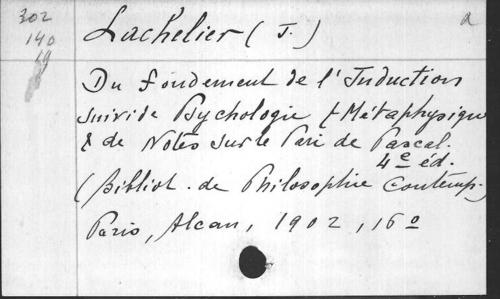 302
140
19
Lachelier (J.)
a
Du Fondement de l'Induction
suivi de Psychologie & Métaphysique
& de Notes sur le Pari de Pascal.
4e éd.
(Bibliot. de Philosophie Contemp.)
Paris, Alcan, 1902, 16o